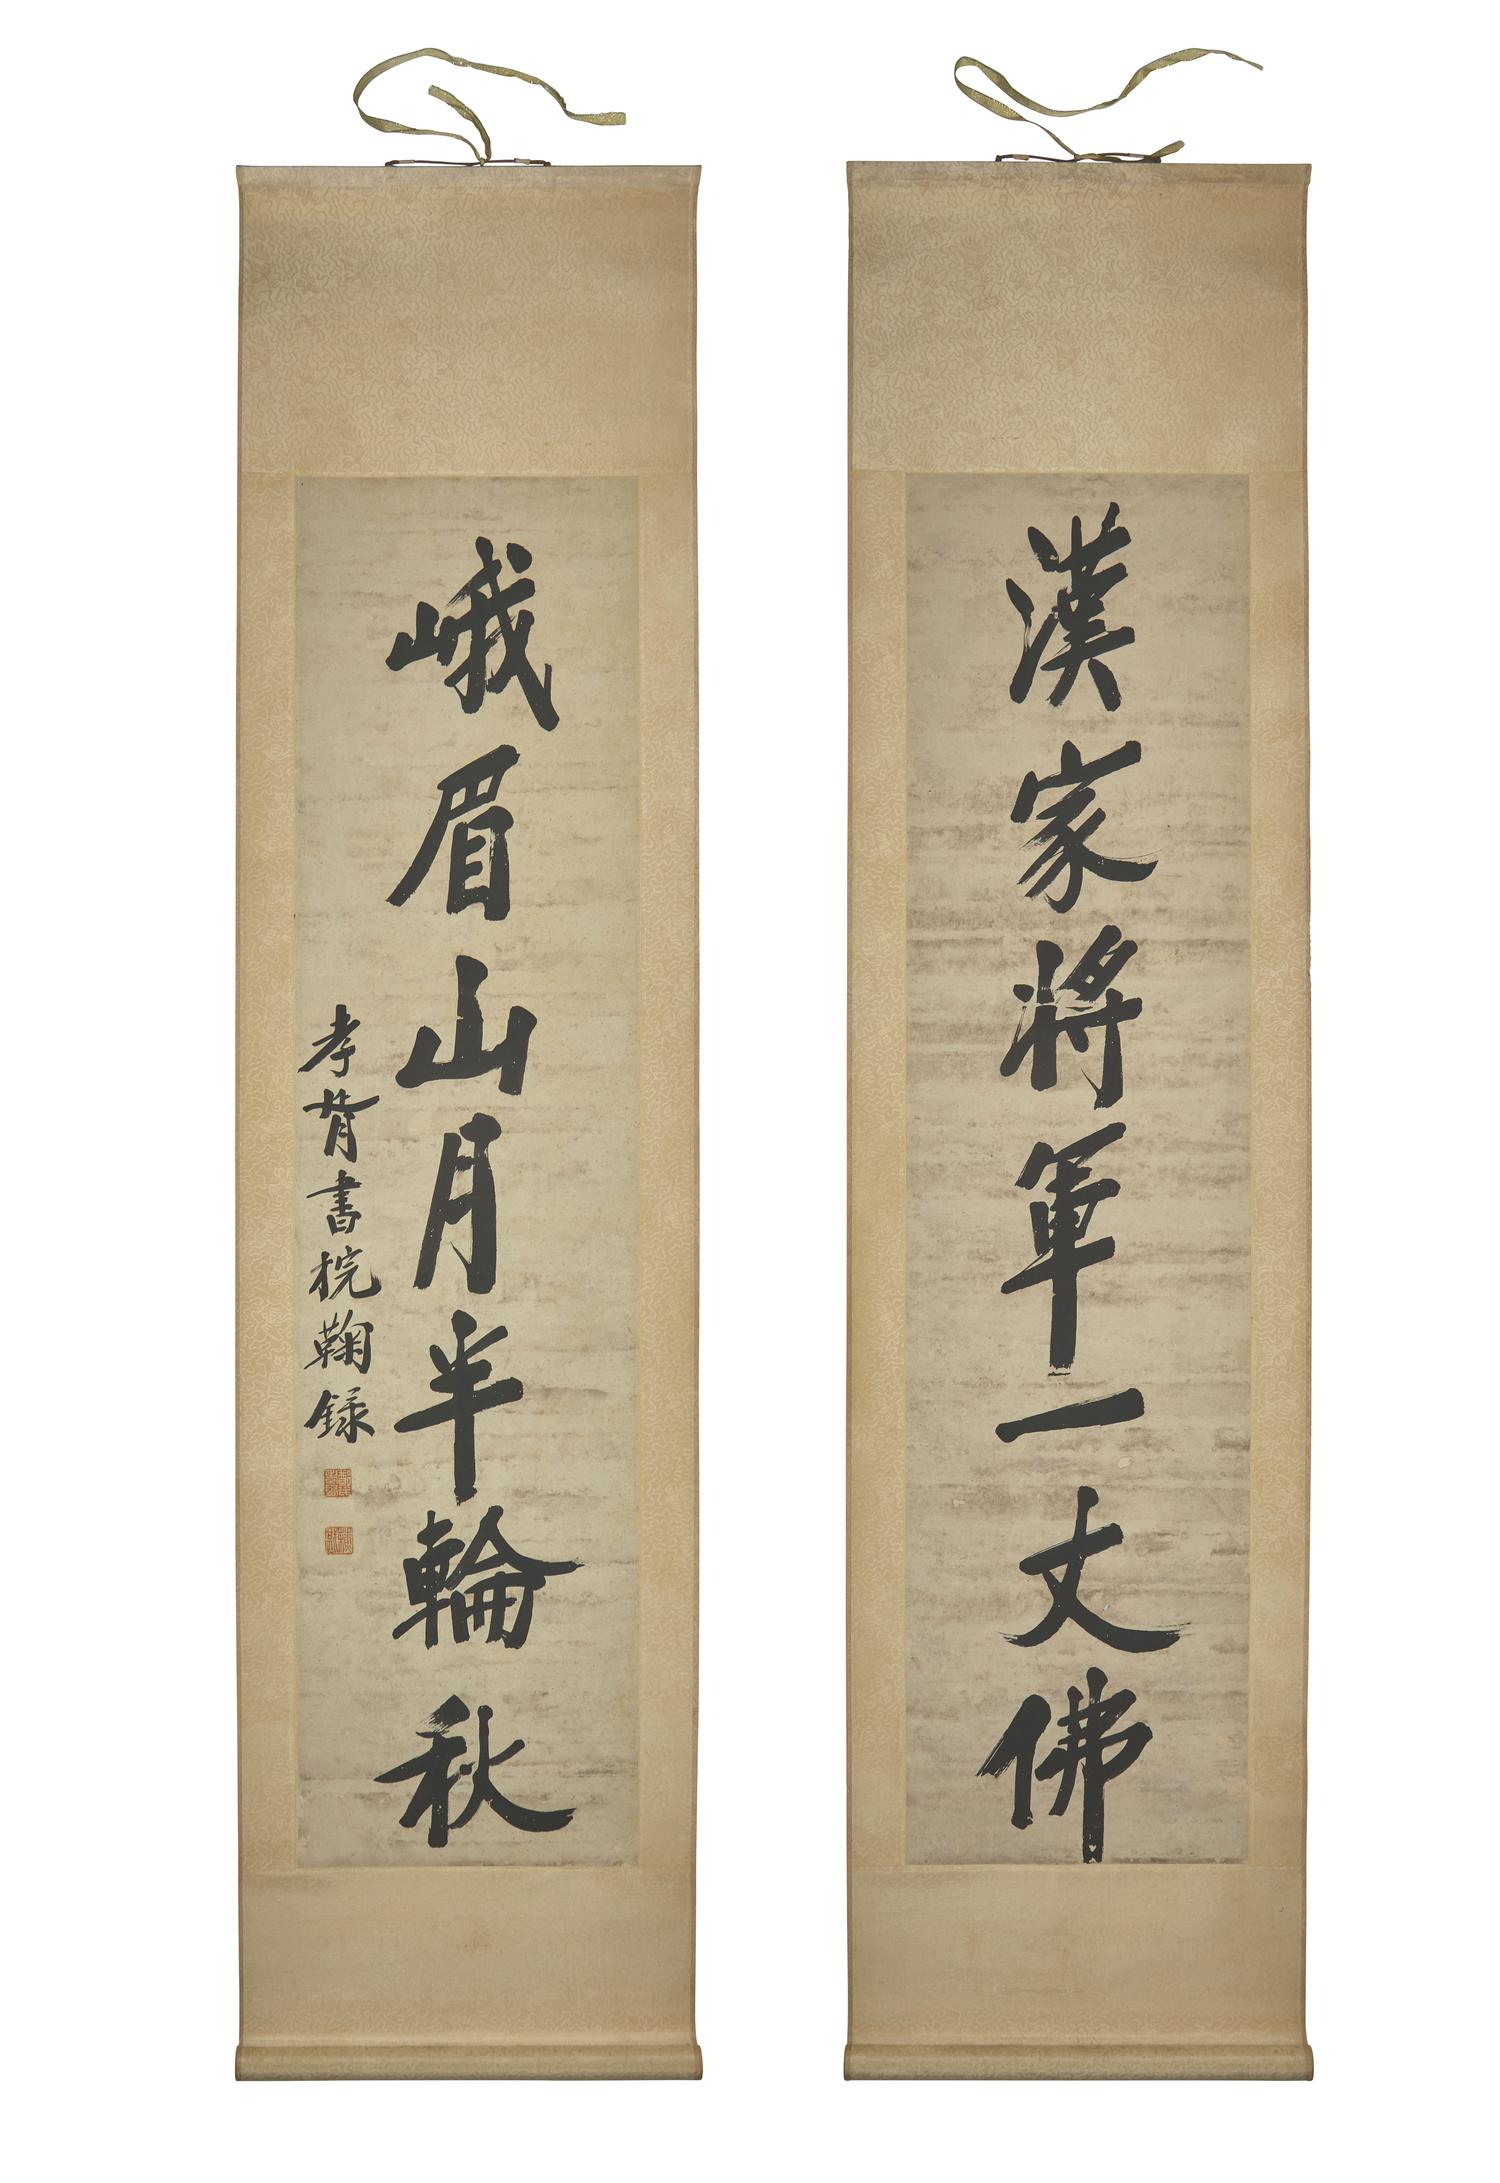 漢家將軍一丈佛
峨眉山月半輪秋
孝胥書於鞠録